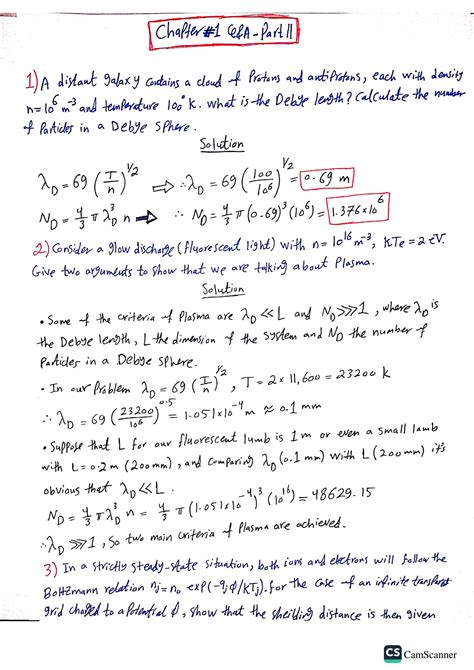 Chapter #1 Q&A - Part II
1) A distant galaxy contains a cloud of Protons and antiprotons, each with density
n=10⁶ m⁻³ and temperature 100°K. what is the Debye length? Calculate the number
of Particles in a Debye Sphere.
Solution
λ_D = 69 (T/n)^1/2 ⇒ ∴ λ_D = 69 (100/10⁶)^1/2 = 0.69 m
N_D = 4/3 π λ_D³ n → ∴ N_D = 4/3 π (0.69)³ (10⁶) = 1.376x10⁶
2) Consider a glow discharge (fluorescent light) with n= 10¹⁶ m⁻³, KTe = 2 eV.
Give two arguments to show that we are talking about Plasma.
Solution
• Some of the criteria of Plasma are λ_D << L and N_D >>> 1, where λ_D is
the Debye length, L the dimension of the system and N_D the number of
Particles in a Debye Sphere.
• In our Problem λ_D = 69 (T/n)^1/2, T = 2 x 11,600 = 23200 K
∴ λ_D = 69 (23200/10¹⁶)^0.5 = 1.051x10⁻⁴ m ≈ 0.1 mm
• Suppose that L for our fluorescent lumb is 1 m or even a small lamb
with L = 0.2 m (200 mm), and comparing λ_D (0.1 mm) with L (200 mm) it's
obvious that λ_D << L.
N_D = 4/3 π λ_D³ n = 4/3 π (1.051x10⁻⁴)³ (10¹⁶) = 48629.15
∴ λ_D >>> 1, So two main criteria of Plasma are achieved.
3) In a strictly steady-state situation, both ions and electrons will follow the
Boltzmann relation nj = n₀ exP(-qjϕ/KTj). For the case of an infinite transparent
grid charged to a Potential ϕ, show that the sheilding distance is then given
CS CamScanner